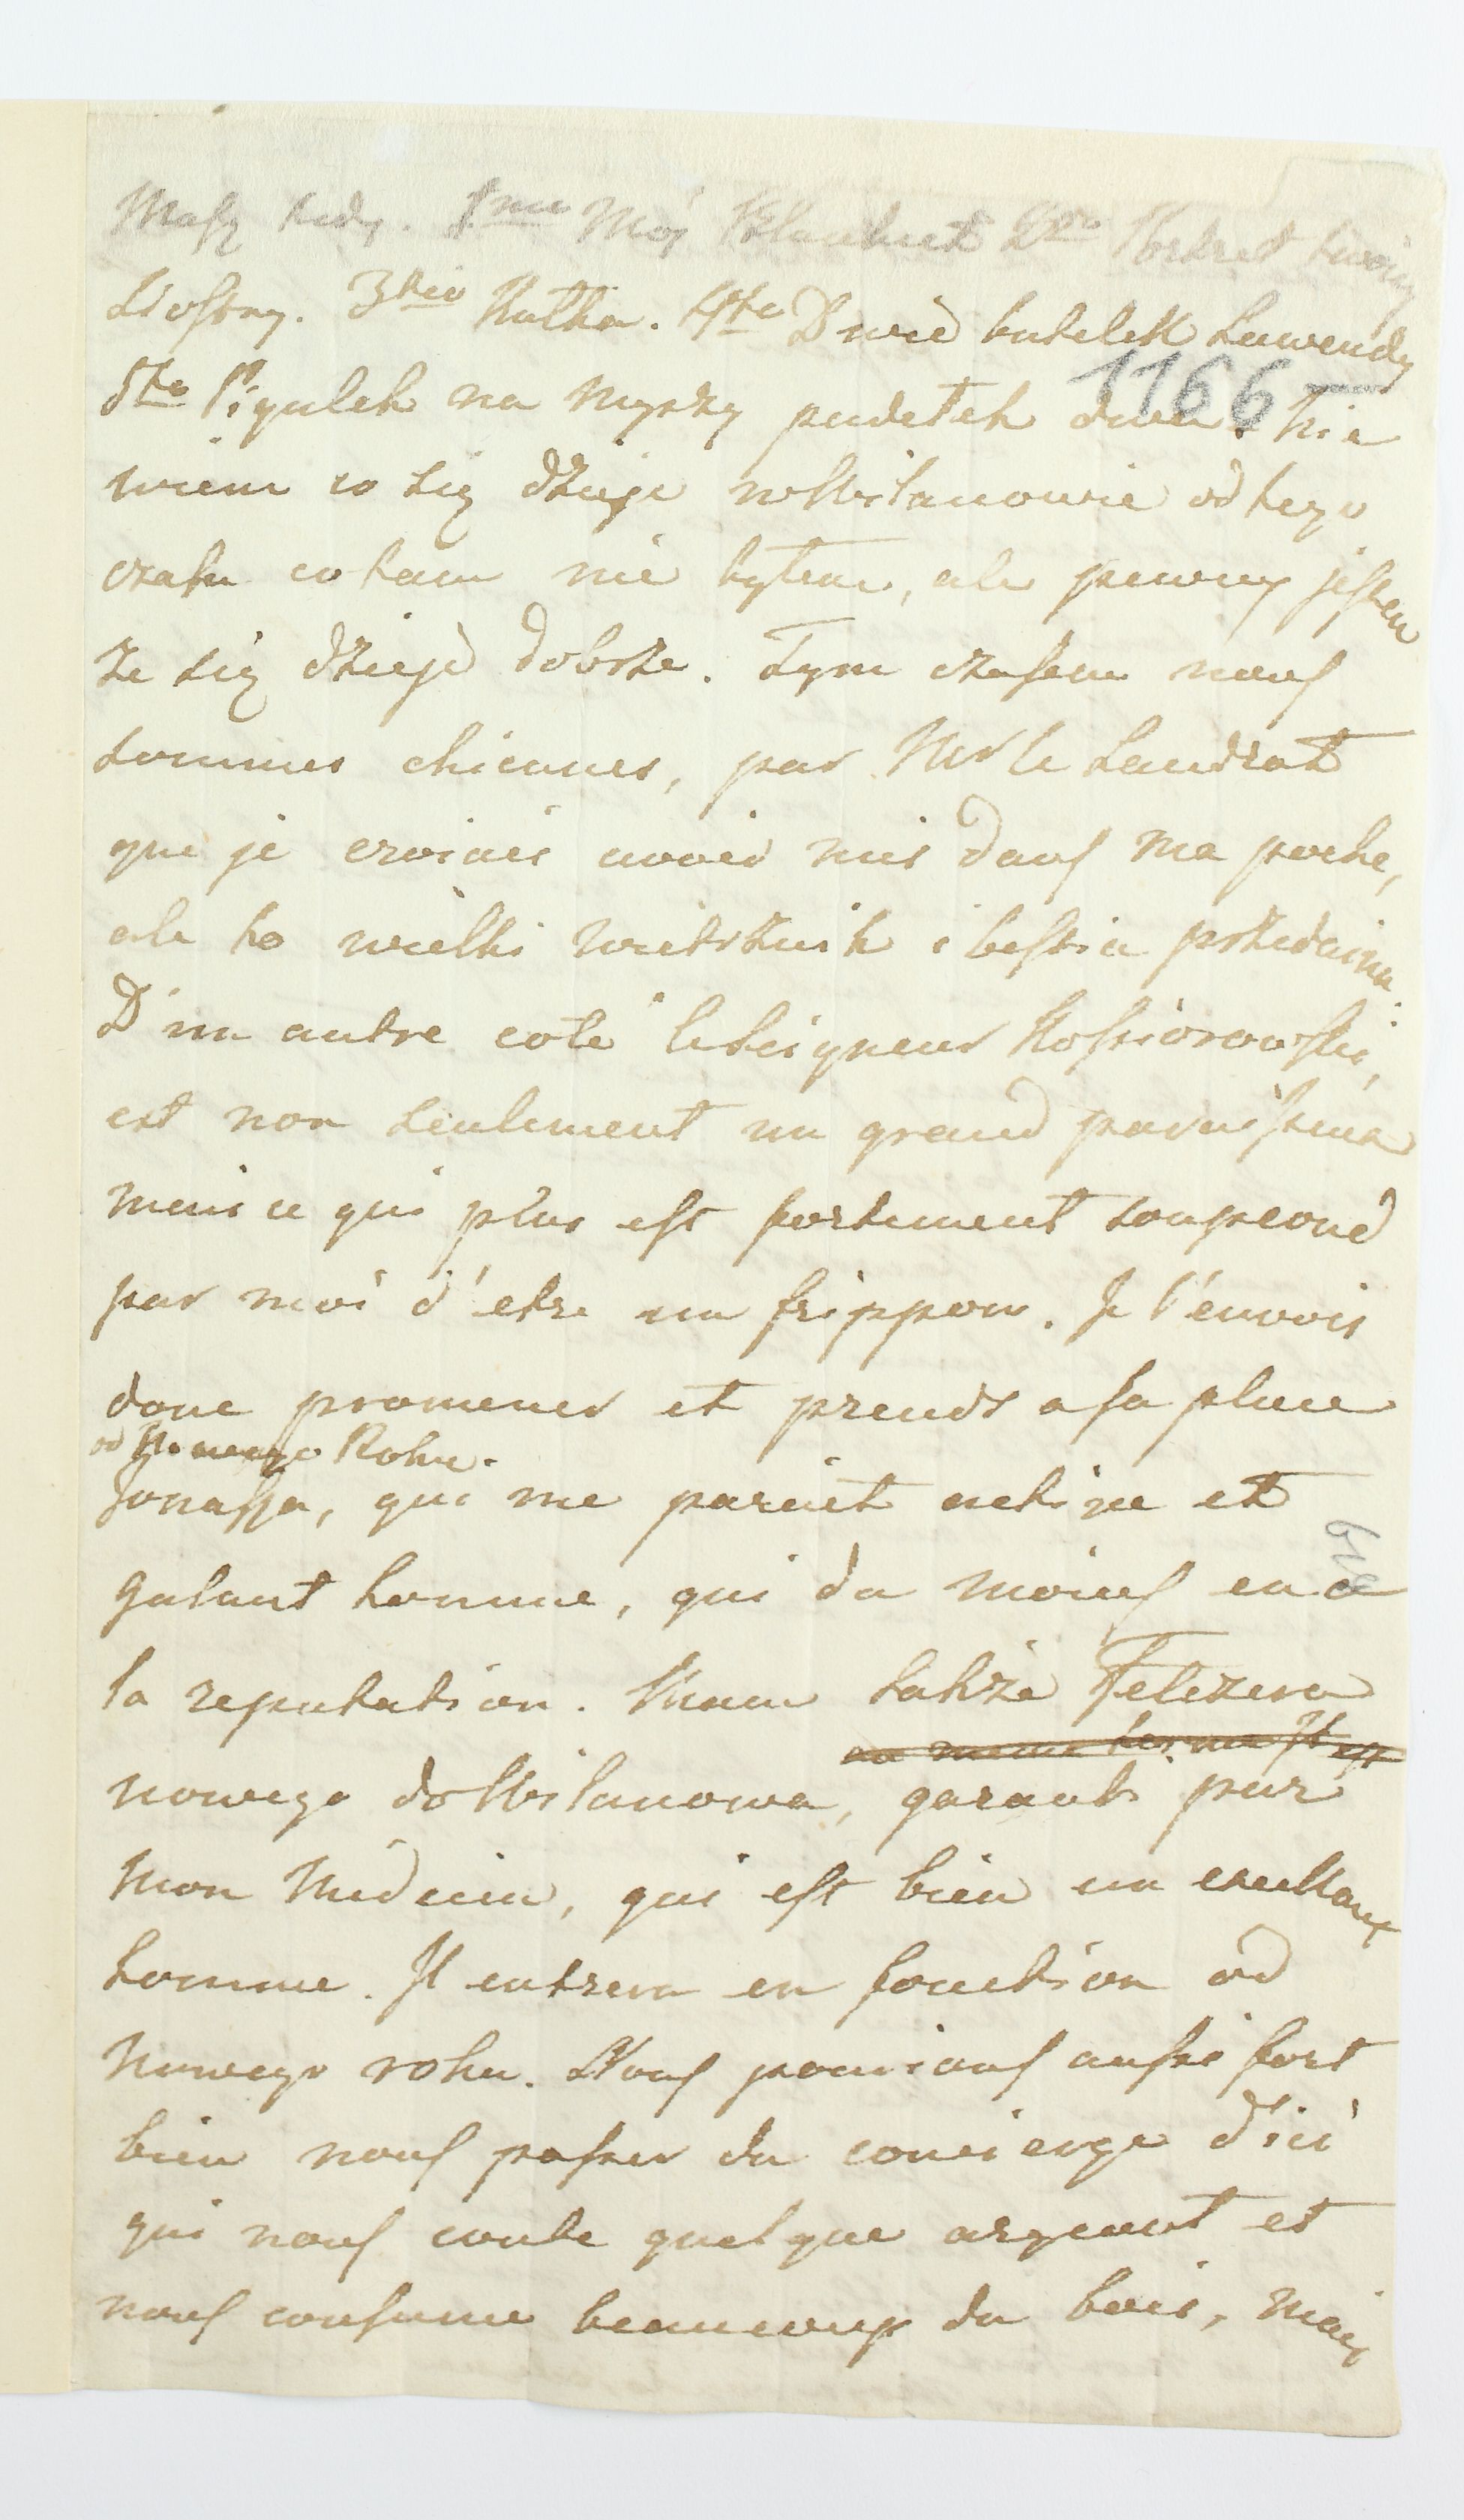 Masz tedy. 1mo Mój Blankiet 2do Portret twoiey
Siostry. 3tio Kulka. 4to Dwie butelek Lawendy
5to Pigulek na Myszy pudełek dwa. Nie
1166
wiem co się dzieje w Wilanowie od tego
czasu co tam nie byłem, ale pewny jestem
że się dzieje dobrze. Tym czasem nous
sommes chicanes, par Mr le Landrat
que je croiais avoir mis dans ma poche,
ale to wielki wietrznik i bestia przedajna.
D'un autre coté le Seigneur Kossiorowski,
est non seulement un grand
mais ce qui plus est fortement soupconé
par moi d'etre un frippon. Je l'envois
donc promener et prends a sa place
od Nowego Roku.
Jonassa, qui me parait active et
galant homme, qui du moins en a
la reputation. Mam także Felczera
nowego do Wilanowa, garanti par
mon Médecin, qui est bien un excellent
homme. Il entrera en fonction od
Nowego roku. Nous pouvions aussi fort
bien nous passer du concierge d'ici
qui nous coute quelque argent et
nous consume beaucoup du bois, mais